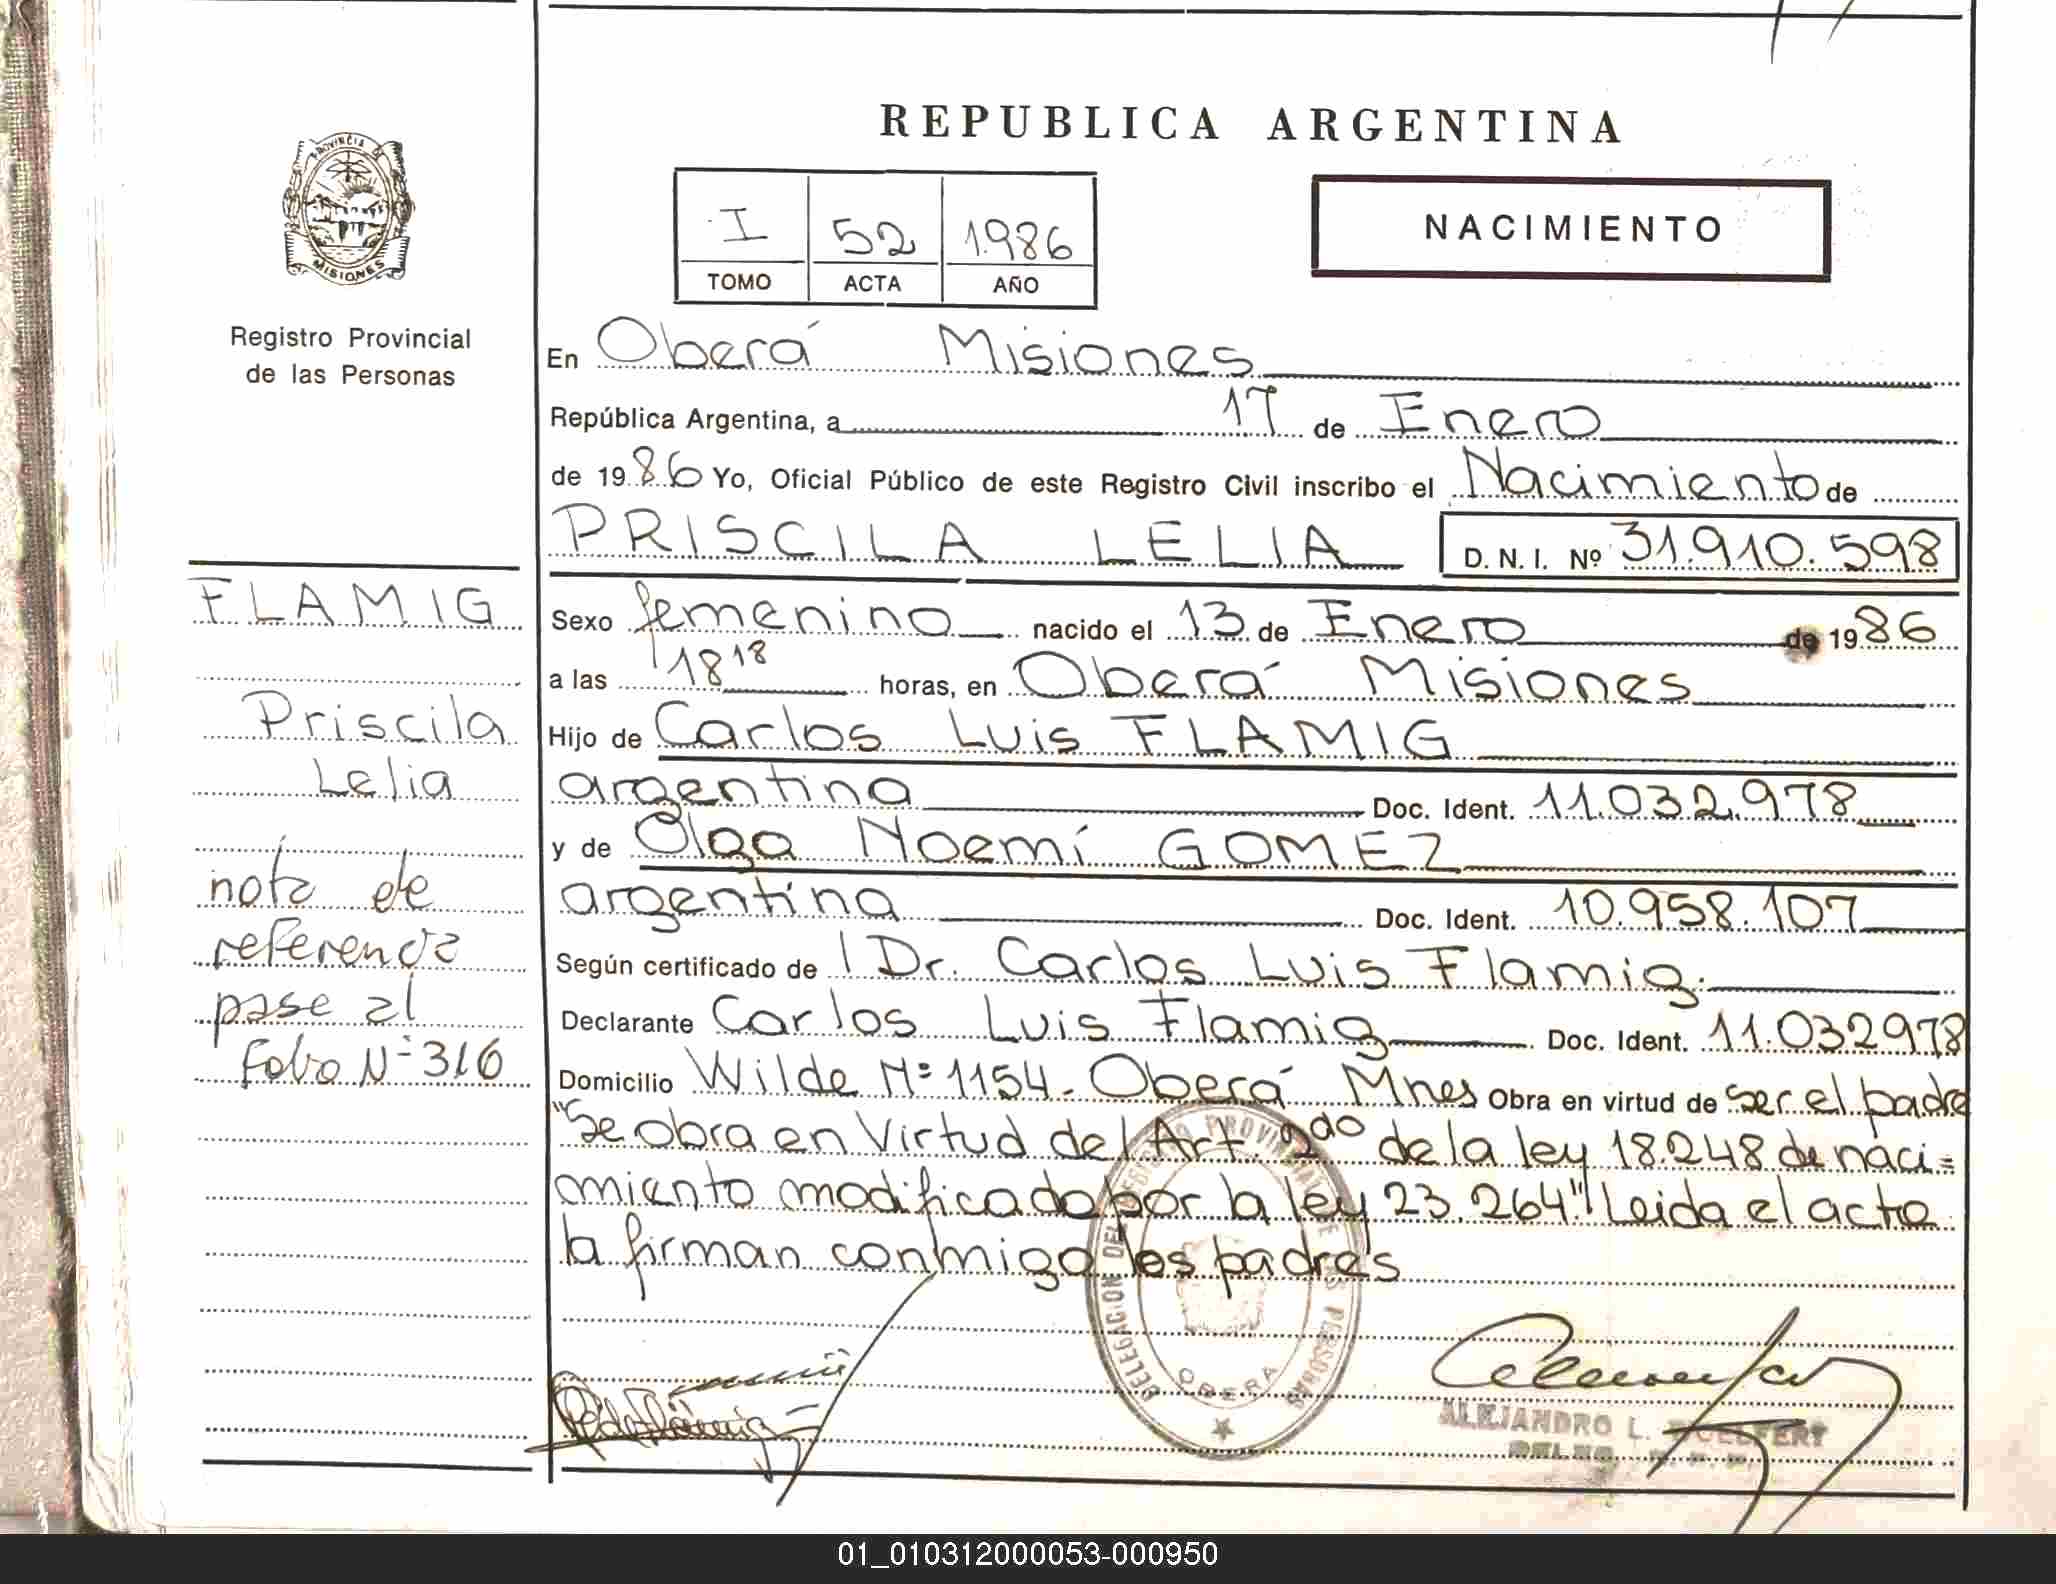 REPUBLICA ARGENTINA
PROVINCIA DE MISIONES
Registro Provincial
de las Personas
I 52 1986
TOMO ACTA AÑO
NACIMIENTO
En Oberá Misiones
República Argentina, a 17 de Enero
de 1986 Yo, Oficial Público de este Registro Civil inscribo el Nacimiento de
PRISCILA LELIA D. N. I. Nº 31.910.598
FLAMIG
Priscila
Lelia
nota de
referencia
pase al
Folio Nº 316
Sexo femenino nacido el 13 de Enero de 1986
a las 18 18 horas, en Oberá Misiones
Hijo de Carlos Luis FLAMIG
argentina Doc. Ident. 11.032.978
y de Olga Noemí GOMEZ
argentina Doc. Ident. 10.958.107
Según certificado de l Dr. Carlos Luis Flamig.
Declarante Carlos Luis Flamig Doc. Ident. 11.032978
Domicilio Wilde Nº 1154 - Oberá Mnes Obra en virtud de ser el padre
"Se obra en Virtud del Art. 2do de la ley 18.248 de naci=
miento modificado por la ley 23.264" Leida el acta
la firman conmigo los padres
DELEGACION DEL REGISTRO PROVINCIAL DE LAS PERSONAS
OBERA
ALEJANDRO L.
01_010312000053-000950